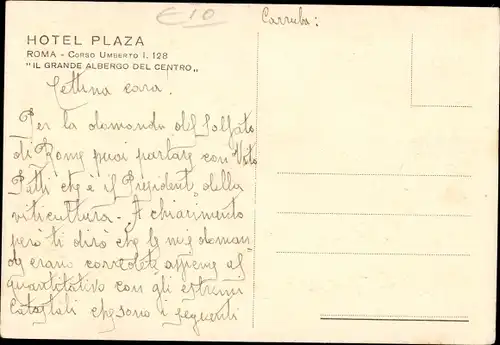 €10
Carruba:
HOTEL PLAZA
ROMA - CORSO UMBERTO I. 128
"IL GRANDE ALBERGO DEL CENTRO„
Lettina cara.
Per la domanda del Solfato
di Rame puoi parlare con Vito
Patti che è il President della
viticultura - A chiarimento
però ti dirò che le mie doman
de erano corredate appena al
quantitativo con gli estremi
Catastali che sono i seguenti